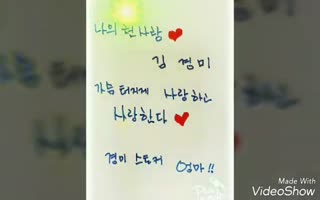 나의 현사랑
김 경미
가슴 터지게 사랑하고
사랑한다
경미 스토커 엄마!!
Made With
VideoShow